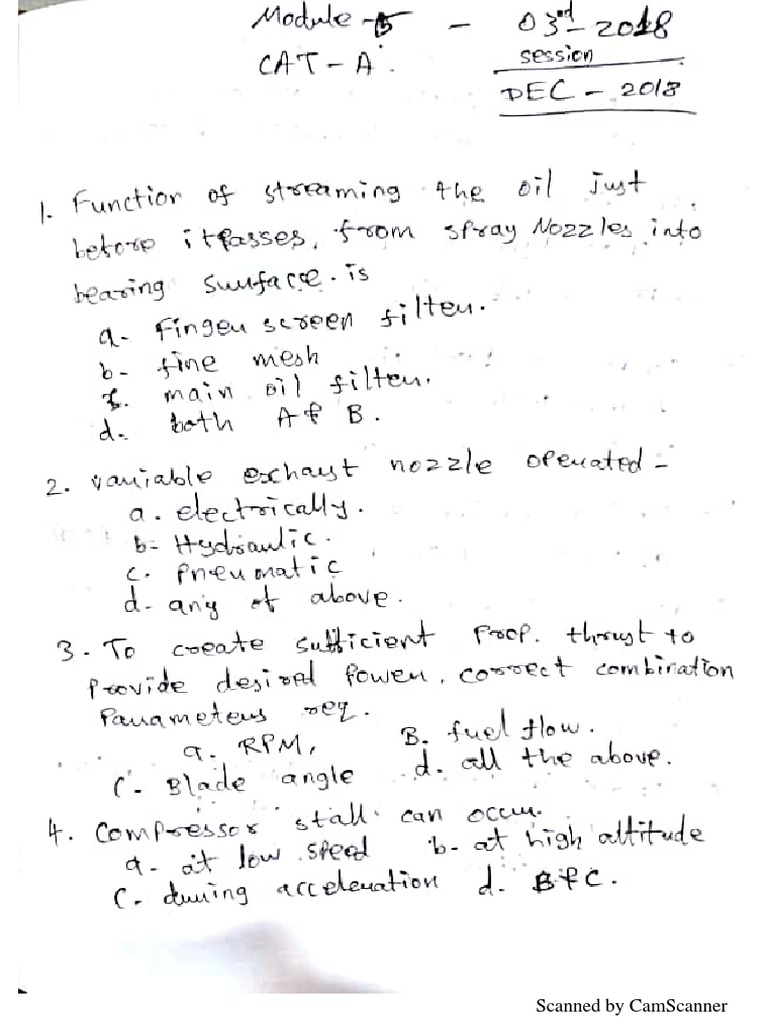 Module - 5 - 03rd - 2018
CAT - A. session
DEC - 2018
1. Function of streaming the oil just
before it passes, from spray Nozzles into
bearing surface. is
a- Finger screen filter.
b- fine mesh
c. main oil filter.
d. both A & B.
2. variable exhaust nozzle operated -
a. electrically.
b- Hydraulic.
c. Pneumatic
d- any of above.
3. To create sufficient Prop. thrust to
Provide desired Power, correct combination
Parameters req.
a. RPM, B. fuel flow.
C- Blade angle d. all the above.
4. Compressor stall can occur.
a- at low speed b- at high altitude
C- during acceleration d. B & C.
Scanned by CamScanner